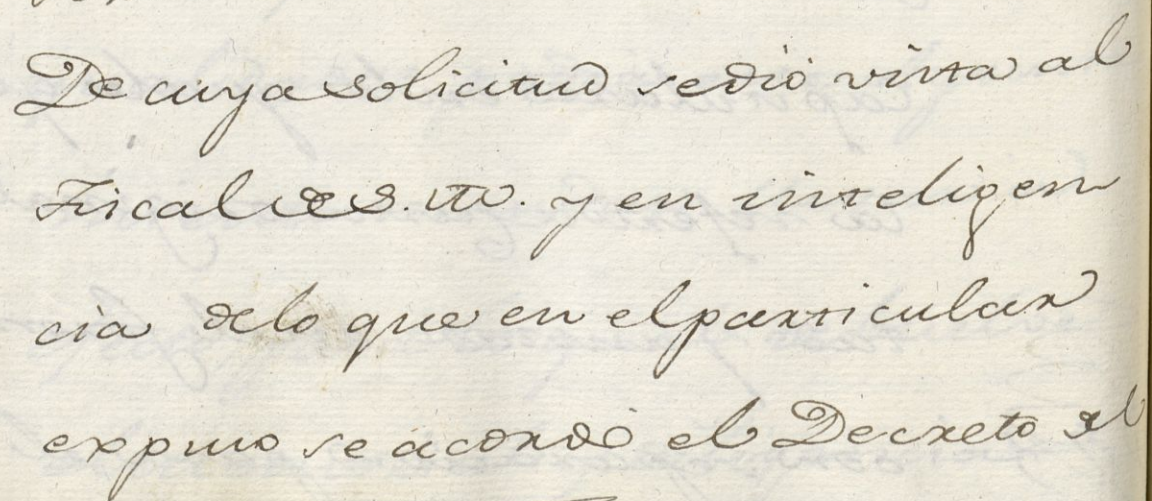 De cuya solicitud se dió vista al
Fiscal de S. M. y en inteligen
cia de lo que en el particular
expuso se acordó el Decreto del